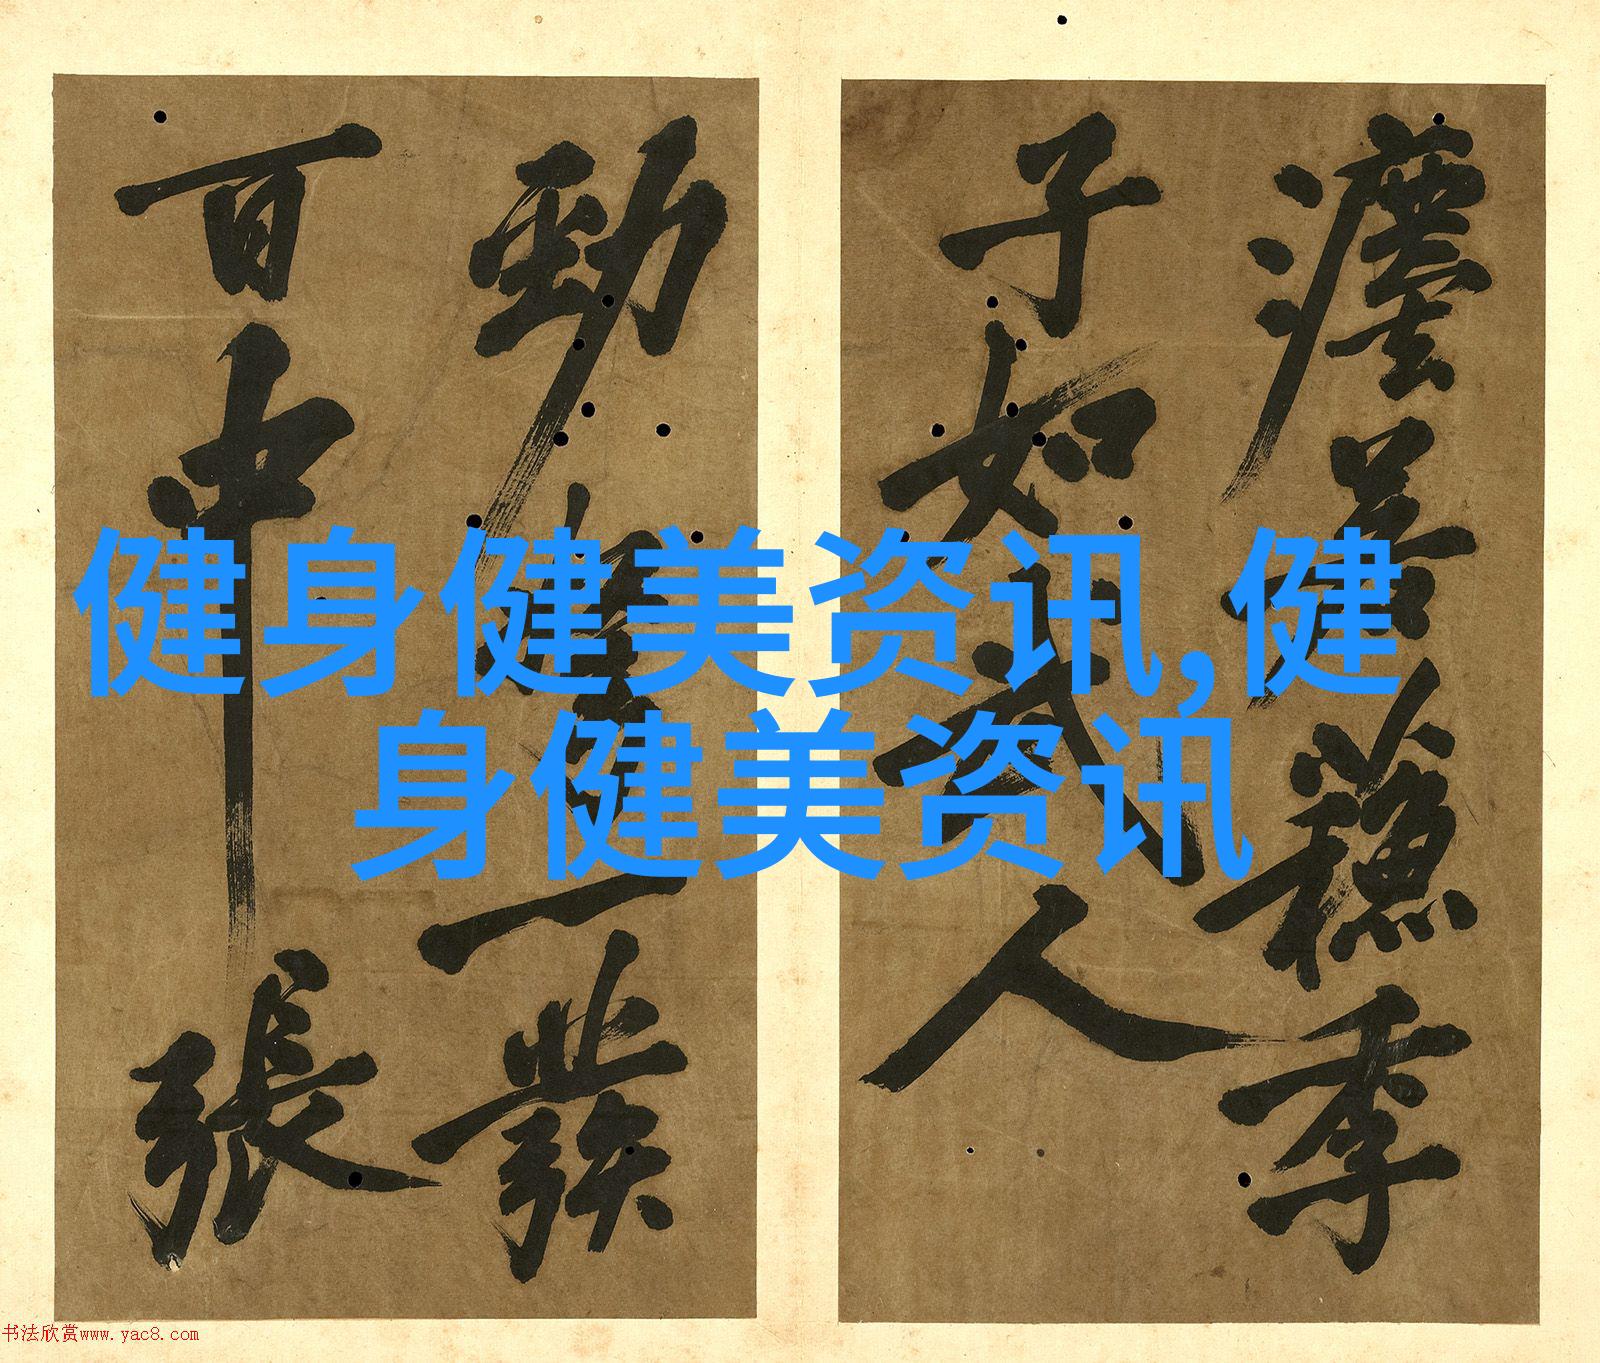 健身健美资讯,健
身健美资讯
季
子如武人
勁一發
百中張
书法欣赏www.yac8.com